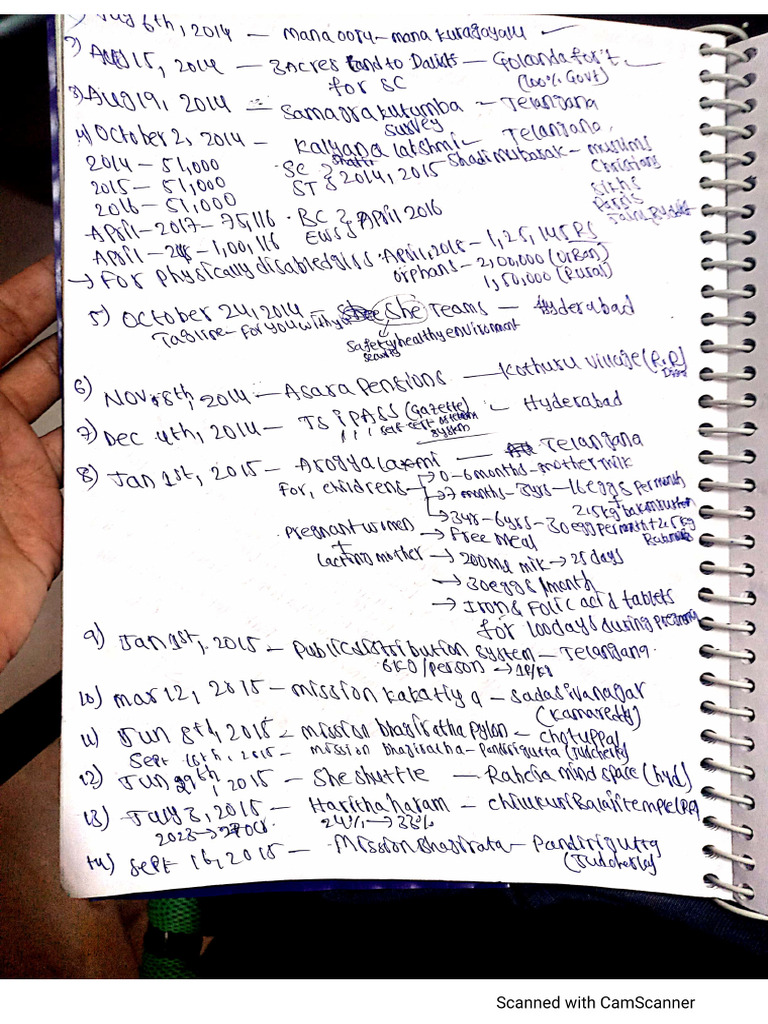 6th, 2014 - Mana ooru - mana
2) Aug 15, 2014 - 3 acres land to Dalits - Golanda fort
for SC (100% Govt)
3) Aug 19, 2014 - Samagra kutumba - Telangana
survey
4) October 2, 2014 - Kalyana lakshmi - Telangana
2014 - 51,000 SC } 2014, 2015 Shadimubarak - muslims
2015 - 51,000 ST Christians
2016 - 51,000 Sikhs
April - 2017 - 75,116 · BC } April 2016 Parsis
April - - 1,00,116 EWS
→ For physically disabled · April, 2018 - 1,25,145 RS
orphans - 2,00,000 (Urban)
1,50,000 (Rural)
5) October 24, 2014 - She Teams - Hyderabad
Tagline - For you with you
Safety healthy enviroment
6) Nov 8th, 2014 - Asara Pensions - Kothuru village (R.R)
7) Dec 4th, 2014 - TS iPASS (Gazette) - Hyderabad
self cert
system
8) Jan 1st, 2015 - Arogya laxmi - Telangana
For, childrens → 0-6 months - mother milk
→ 7 months - 3yrs - 16 eggs per month
2.5 kg
→ 3yr - 6yrs - 30 egg per month + 2.5 kg
· Pregnant women → Free meal
+
lacting mother → 200 ml milk → 25 days
→ 30 eggs / month
→ Iron & Folic acid tablets
for 100 days during
9) Jan 1st, 2015 - Public distribution system - Telangana.
6KG / person →
10) mar 12, 2015 - mission kakatiya - Sadasivanagar
(Kamareddy)
11) Jun 8th, 2015 - mission bhagiratha pylon - chotuppal
Sept 16th, 2015 - mission bhagiratha - Pandirigutta (Judcherla)
12) Jun 29th, 2015 - She shuttle - Raheja mind space (hyd)
13) July 3, 2015 - Haritha haram - chilukuri Balaji temple
2023 → 24% → 33%
14) Sept 16, 2015 - Mission Bhagirata - Pandirigutta
(Judcherla)
Scanned with CamScanner